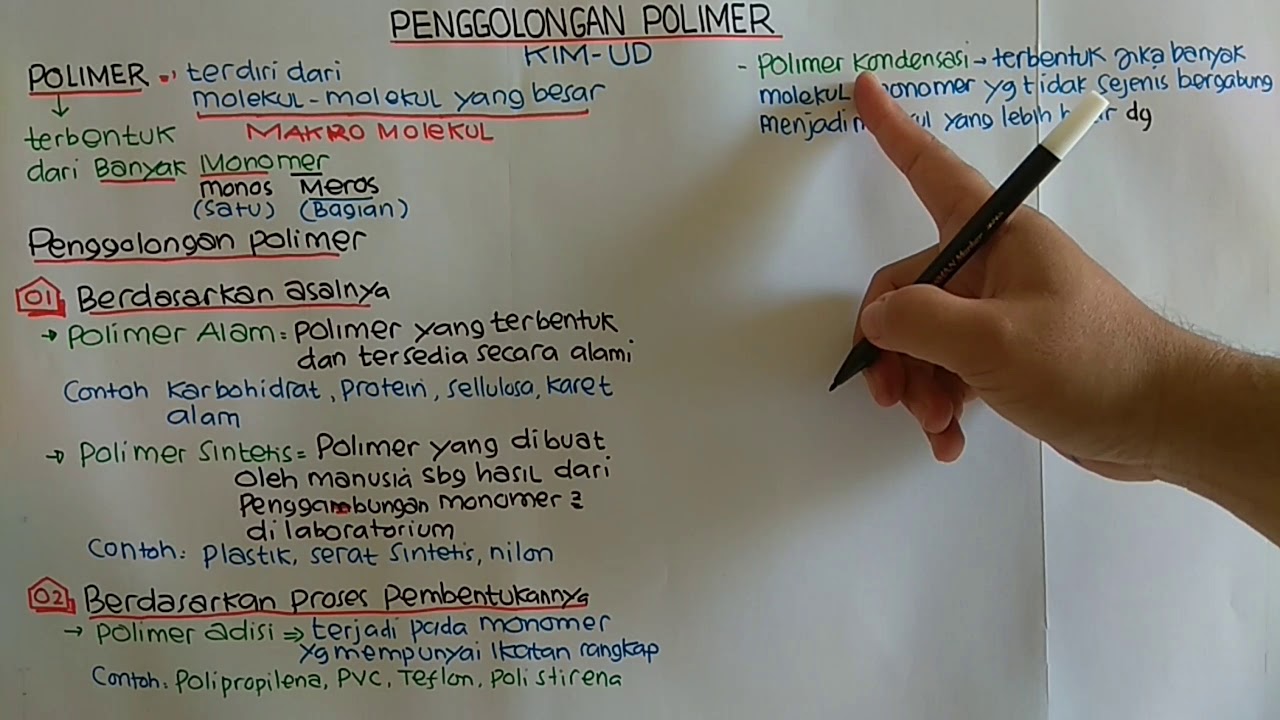 PENGGOLONGAN POLIMER
KIM-UD
POLIMER terdiri dari
molekul-molekul yang besar
MAKROMOLEKUL
terbentuk
dari Banyak Monomer
monos Meros
(satu) (Bagian)
Penggolongan polimer
01 Berdasarkan asalnya
→ Polimer Alam = Polimer yang terbentuk
dan tersedia secara alami
Contoh karbohidrat, protein, sellulosa, karet
alam
→ Polimer Sintetis = Polimer yang dibuat
Oleh manusia sbg hasil dari
Penggambungan monomer 2
di laboratorium
Contoh: plastik, serat sintetis, nilon
02 Berdasarkan proses Pembentukannya
→ Polimer adisi ⇒ terjadi pada monomer
yg mempunyai Ikatan rangkap
Contoh: Polipropilena, PVC, Teflon, Polistirena
- Polimer kondensasi → terbentuk jika banyak
molekul monomer yg tidak sejenis bergabung
menjadi yang lebih dg